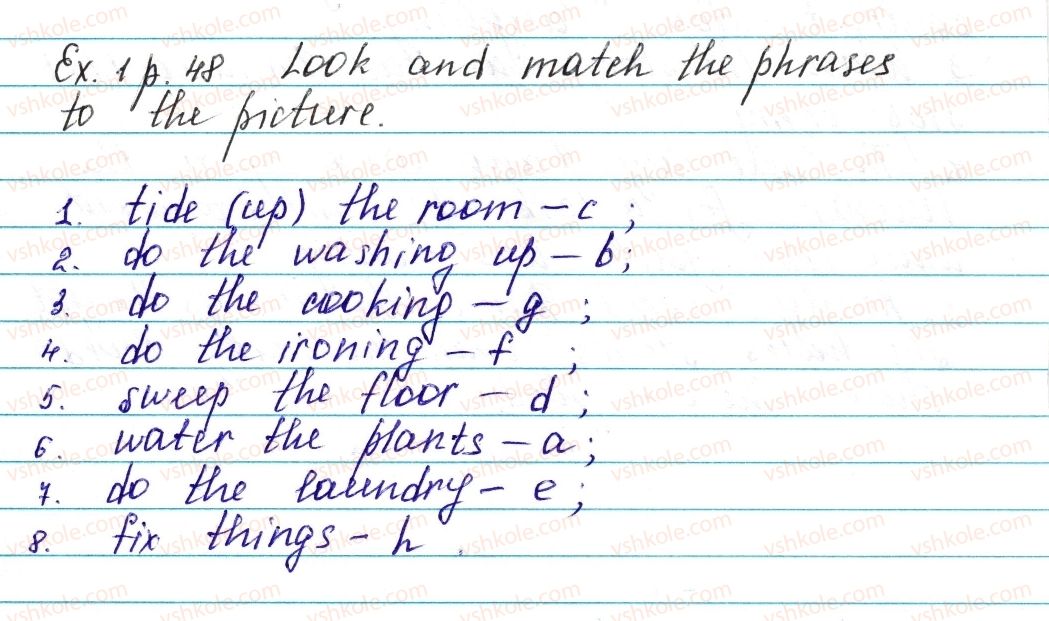 Ex. 1 p. 48 Look and match the phrases
to the picture.
1. tide (up) the room – c ;
2. do the washing up – b;
3. do the cooking – g ;
4. do the ironing – f ;
5. sweep the floor – d ;
6. water the plants – a;
7. do the laundry – e ;
8. fix things – h .
vshkole.com